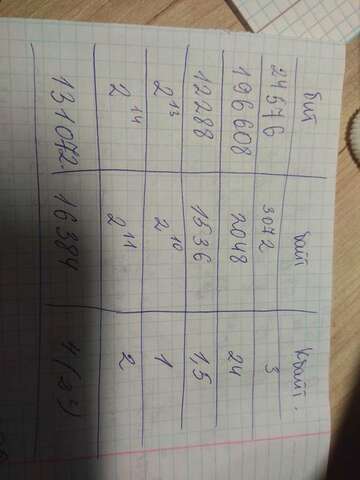 бит байт Кбайт.
24576 3072 3
196608 2048 24
12288 1536 1,5
2¹³ 2¹⁰ 1
2¹⁴ 2¹¹ 2
131072. 16384 4 (2²)